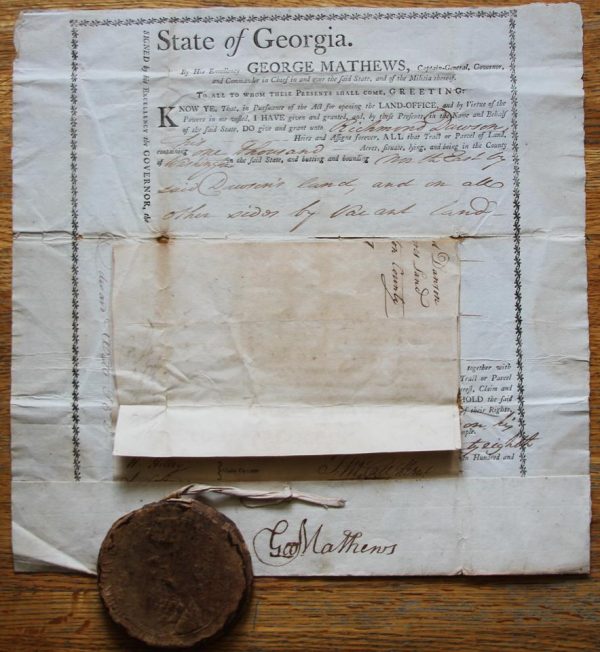 State of Georgia.
By His Excellency GEORGE MATHEWS, Captain-General, Governor,
and Commander in Chief in and over the said State, and of the Militia thereof.
TO ALL TO WHOM THESE PRESENTS SHALL COME, GREETING:
KNOW YE, That, in Pursuance of the Act for opening the LAND-OFFICE, and by Virtue of the
Powers in me vested, I HAVE given and granted, and, by these Presents, in the Name and Behalf
of the said State, DO give and grant unto Richmond Dawson
his Heirs and Assigns forever, ALL that Tract or Parcel of Land,
containing One thousand Acres, situate, lying, and being in the County
of Washington in the said State, and butting and bounding North East by
said Dawson's land, and on all
other sides by Vacant land
SIGNED by his EXCELLENCY the GOVERNOR, the
Dawson
Land
County
together with
Tract or Parcel
Claim and
HOLD the said
of their Rights,
on his
eighth
Hundred and
Geo Mathews